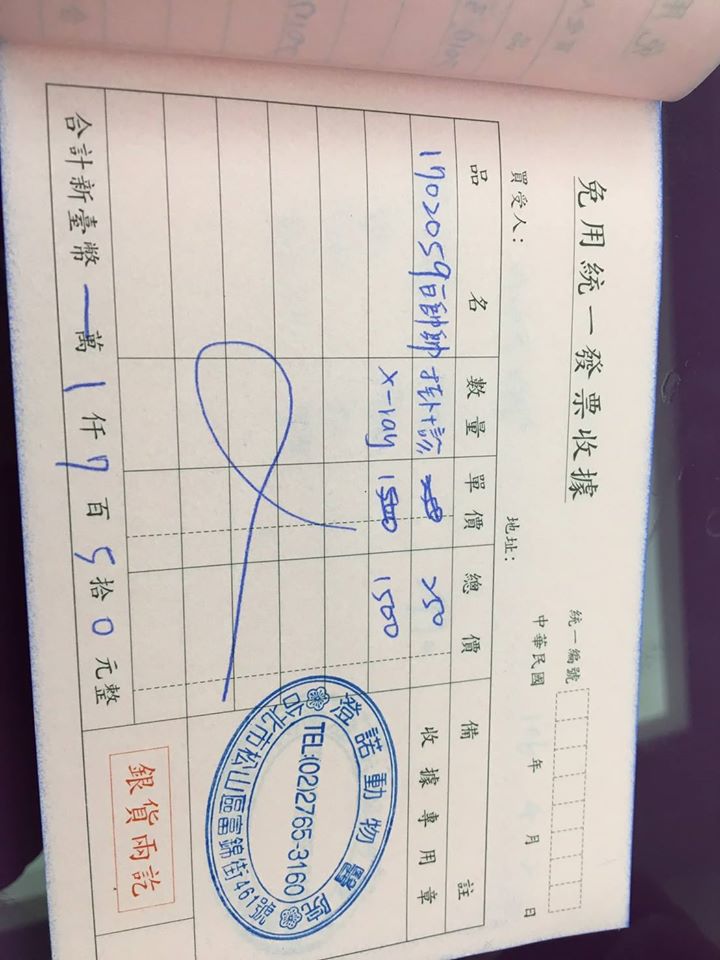 免用統一發票收據
統一編號
買受人：
地址：
中華民國 106 年 4 月 日
品名 數量 單價 總價 備註
1702059 掛+診 250 250
x-ray 1500 1500
收據專用章
登諾動物醫院
TEL:(02)2765-3160
台北市松山區富錦街461號
合計新臺幣 一 萬 1 仟 7 百 5 拾 0 元整
銀貨兩訖